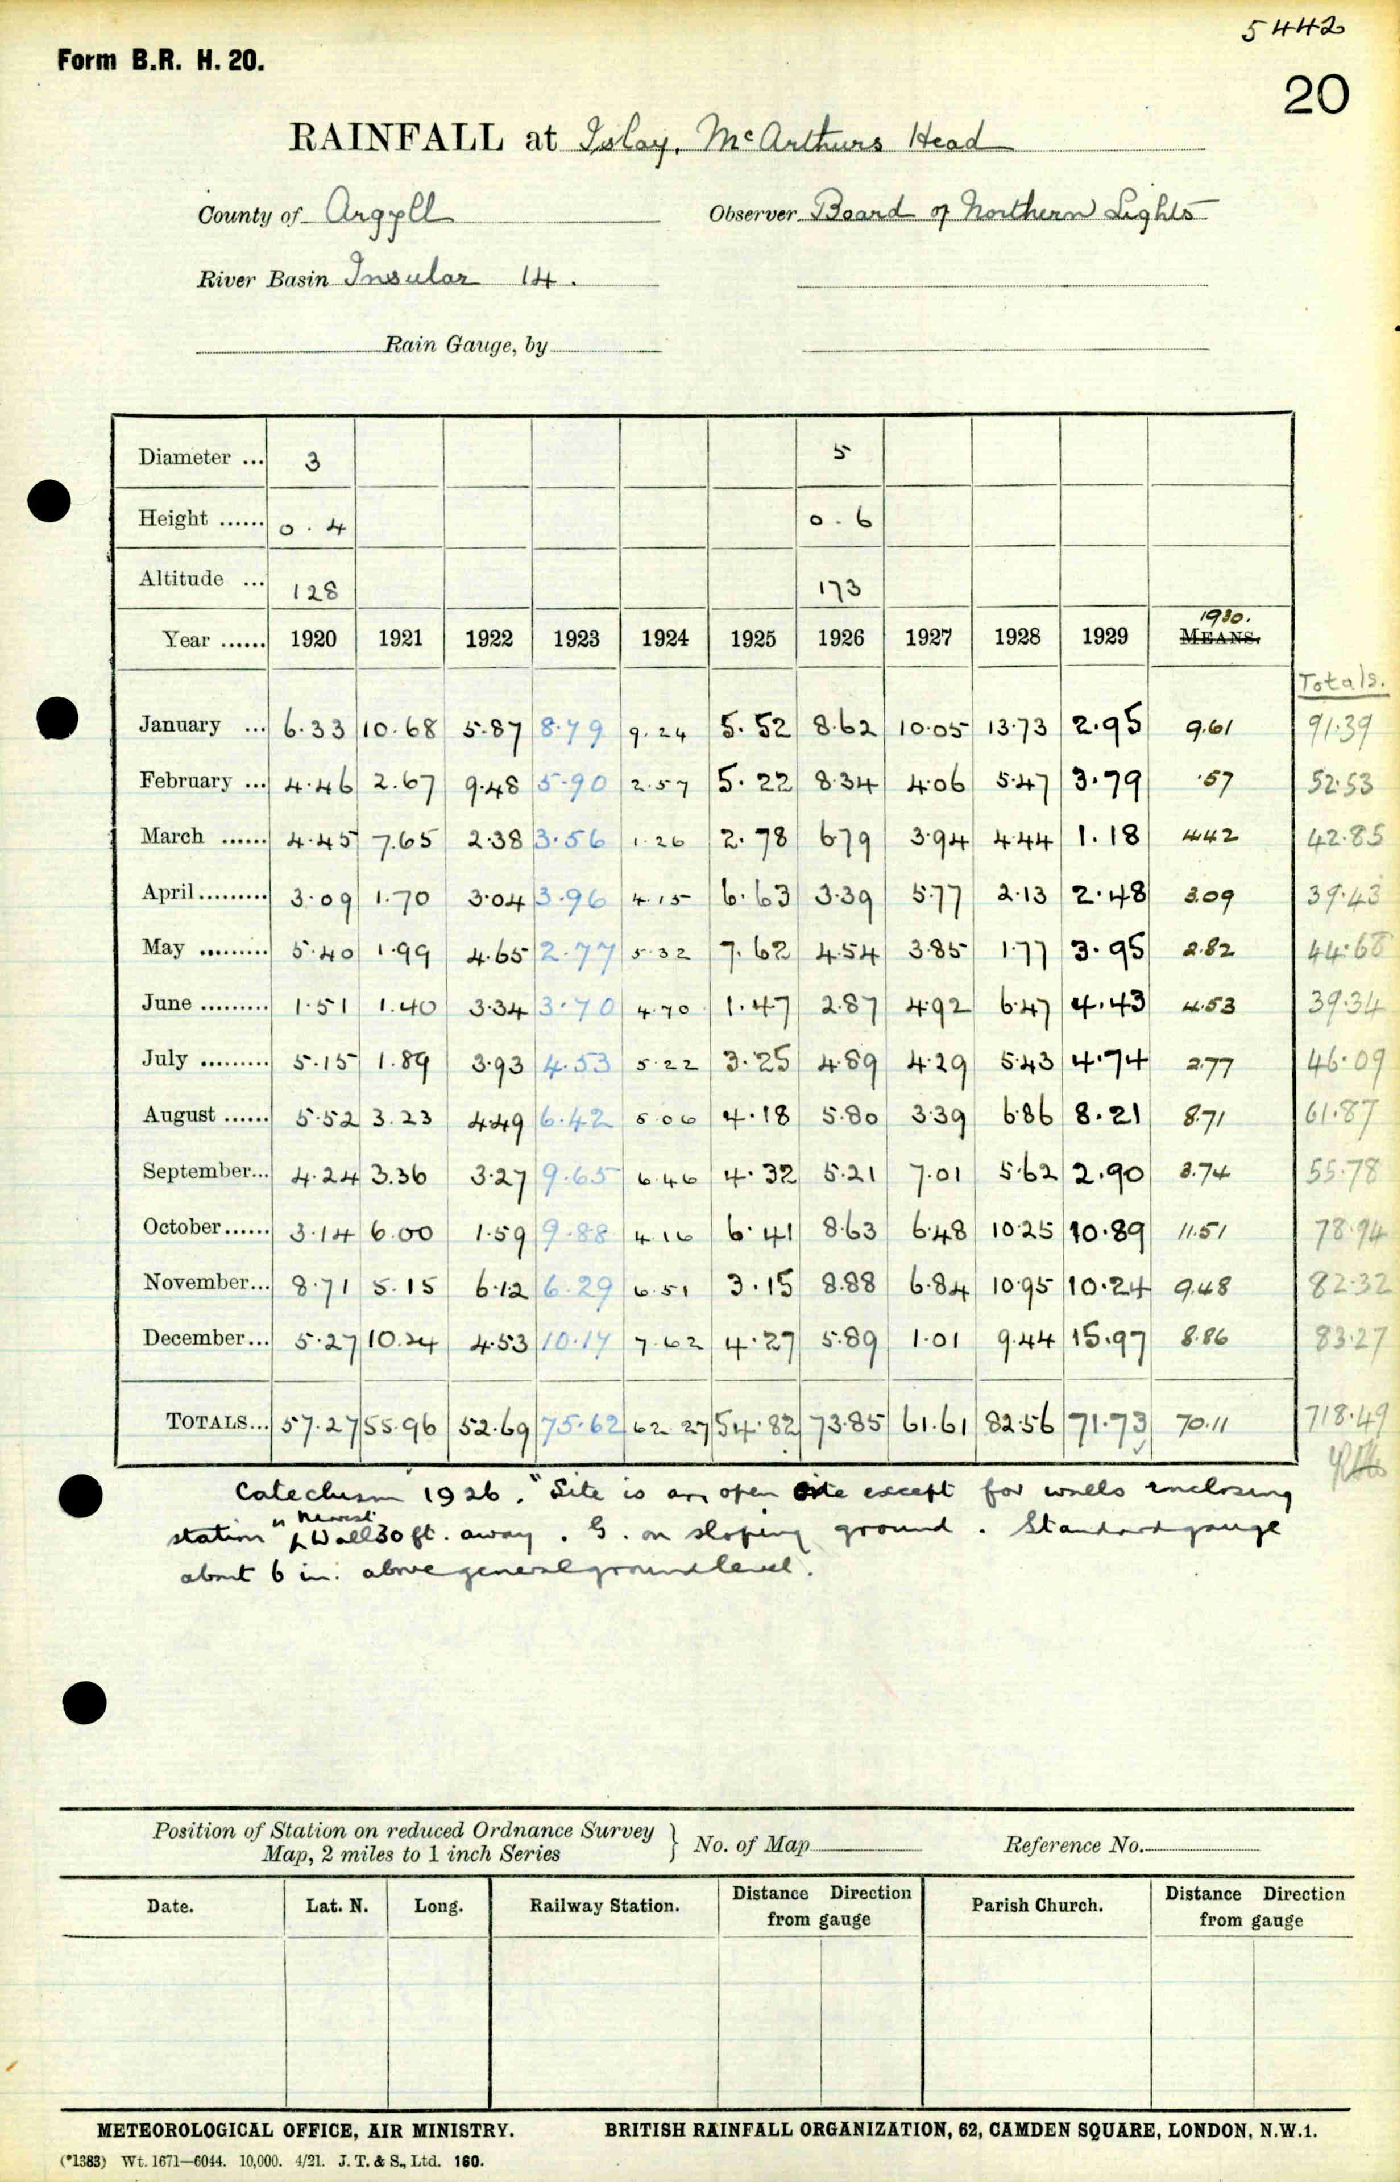 5442
Form B.R. H. 20.
20
RAINFALL at Islay, McArthurs Head
County of Argyll Observer Board of Northern Lights
River Basin Insular 14.
Rain Gauge, by
Diameter ... 3 5
Height ...... 0.4 0.6
Altitude ... 128 173
1930.
Year ...... 1920 1921 1922 1923 1924 1925 1926 1927 1928 1929 MEANS.
Totals.
January ... 6.33 10.68 5.87 8.79 9.24 5.52 8.62 10.05 13.73 2.95 9.61 91.39
February ... 4.46 2.67 9.48 5.90 2.57 5.22 8.34 4.06 5.47 3.79 .57 52.53
March ...... 4.45 7.65 2.38 3.56 1.26 2.78 6.79 3.94 4.44 1.18 4.42 42.85
April ......... 3.09 1.70 3.04 3.96 4.15 6.63 3.39 5.77 2.13 2.48 3.09 39.43
May ......... 5.40 1.99 4.65 2.77 5.32 7.62 4.54 3.85 1.77 3.95 2.82 44.68
June ......... 1.51 1.40 3.34 3.70 4.70 1.47 2.87 4.92 6.47 4.43 4.53 39.34
July ......... 5.15 1.89 3.93 4.53 5.22 3.25 4.89 4.29 5.43 4.74 2.77 46.09
August ...... 5.52 3.23 4.49 6.42 5.06 4.18 5.80 3.39 6.86 8.21 8.71 61.87
September... 4.24 3.36 3.27 9.65 6.46 4.32 5.21 7.01 5.62 2.90 3.74 55.78
October...... 3.14 6.00 1.59 9.88 4.16 6.41 8.63 6.48 10.25 10.89 11.51 78.94
November... 8.71 5.15 6.12 6.29 6.51 3.15 8.88 6.84 10.95 10.24 9.48 82.32
December... 5.27 10.24 4.53 10.17 7.62 4.27 5.89 1.01 9.44 15.97 8.86 83.27
TOTALS... 57.27 55.96 52.69 75.62 62.27 54.82 73.85 61.61 82.56 71.73 70.11 718.49
Catechism 1926. "Site is an open site except for walls enclosing
station" Nearest Wall 30 ft. away. G. on sloping ground. Standard gauge
about 6 in: above general ground level.
Position of Station on reduced Ordnance Survey
Map, 2 miles to 1 inch Series } No. of Map Reference No.
Date. Lat. N. Long. Railway Station. Distance Direction from gauge Parish Church. Distance Direction from gauge
METEOROLOGICAL OFFICE, AIR MINISTRY. BRITISH RAINFALL ORGANIZATION, 62, CAMDEN SQUARE, LONDON, N.W.1.
(*1383) Wt. 1671—6044. 10,000. 4/21. J. T. & S., Ltd. 160.